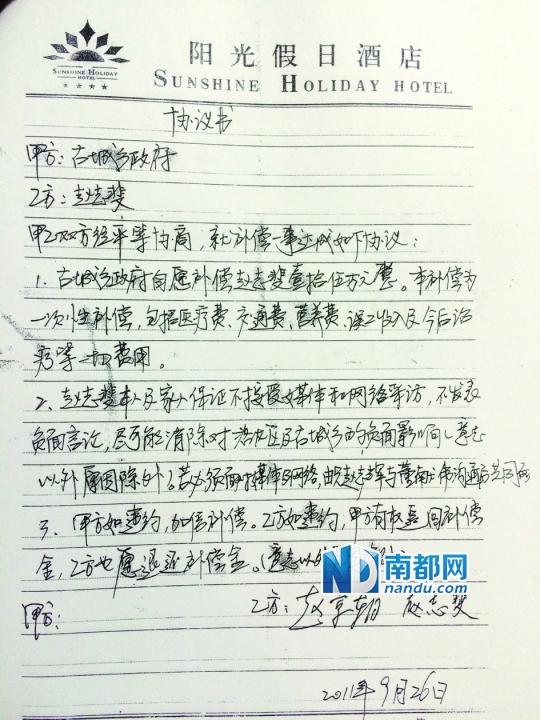 阳光假日酒店
SUNSHINE HOLIDAY HOTEL
SUNSHINE HOLIDAY
HOTEL
协议书
甲方：古城乡政府
乙方：赵志斐
甲乙双方经平等协商，就补偿一事达成如下协议：
1、古城乡政府自愿补偿赵志斐壹拾伍万元整。本补偿为
一次性补偿，包括医疗费、交通费、营养费、误工收入及今后治
疗等一切费用。
2、赵志斐本人及家人保证不接受媒体和网络采访，不发表
负面言论，尽可能消除对 区及古城乡的负面影响（意志
以外原因除外）。若必须面对媒体与网络，由赵志斐与董 沟通后共同
3、甲方如违约，加倍补偿。乙方如违约，甲方有权要回补偿
金，乙方也愿退还补偿金。（意志以
南都网
nandu.com
甲方：
乙方：赵京朝 赵志斐
2011年9月26日